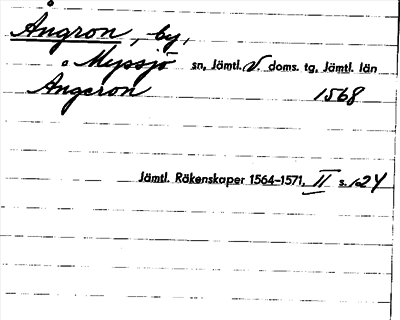 Ångron, by,
Myssjö sn, Jämtl. V. doms. tg, Jämtl. län
Ångeron 1568
Jämtl. Räkenskaper 1564-1571, II s. 124